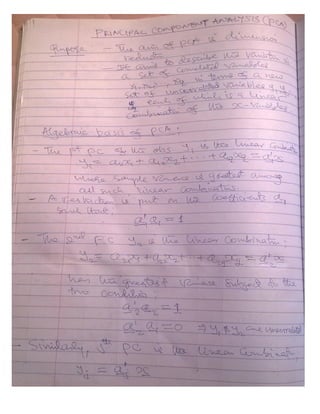 PRINCIPAL COMPONENT ANALYSIS (PCA)
Purpose - The aim of PCA is dimension
reduction
- It aims to describe the variation in
a set of correlated variables
in terms of a new
set of uncorrelated variables y1, y2
each of which is a linear
combination of the x-variables
Algebraic basis of PCA:
- The 1st PC of the obs. y1 is the linear combination
y1 = a11x1 + a12x2 + ... + a1qxq = a1'x
whose sample variance is greatest among
all such linear combinations.
- A restriction is put on the coefficients a1
such that
a1'a1 = 1
- The 2nd PC y2 is the linear combination:
y2 = a21x1 + a22x2 + ... + a2qxq = a2'x
has the greatest variance subject to the
two conditions:
a2'a2 = 1
a2'a1 = 0 ⇒ y1 & y2 are uncorrelated
- Similarly, jth PC is the linear combination
yj = aj'x